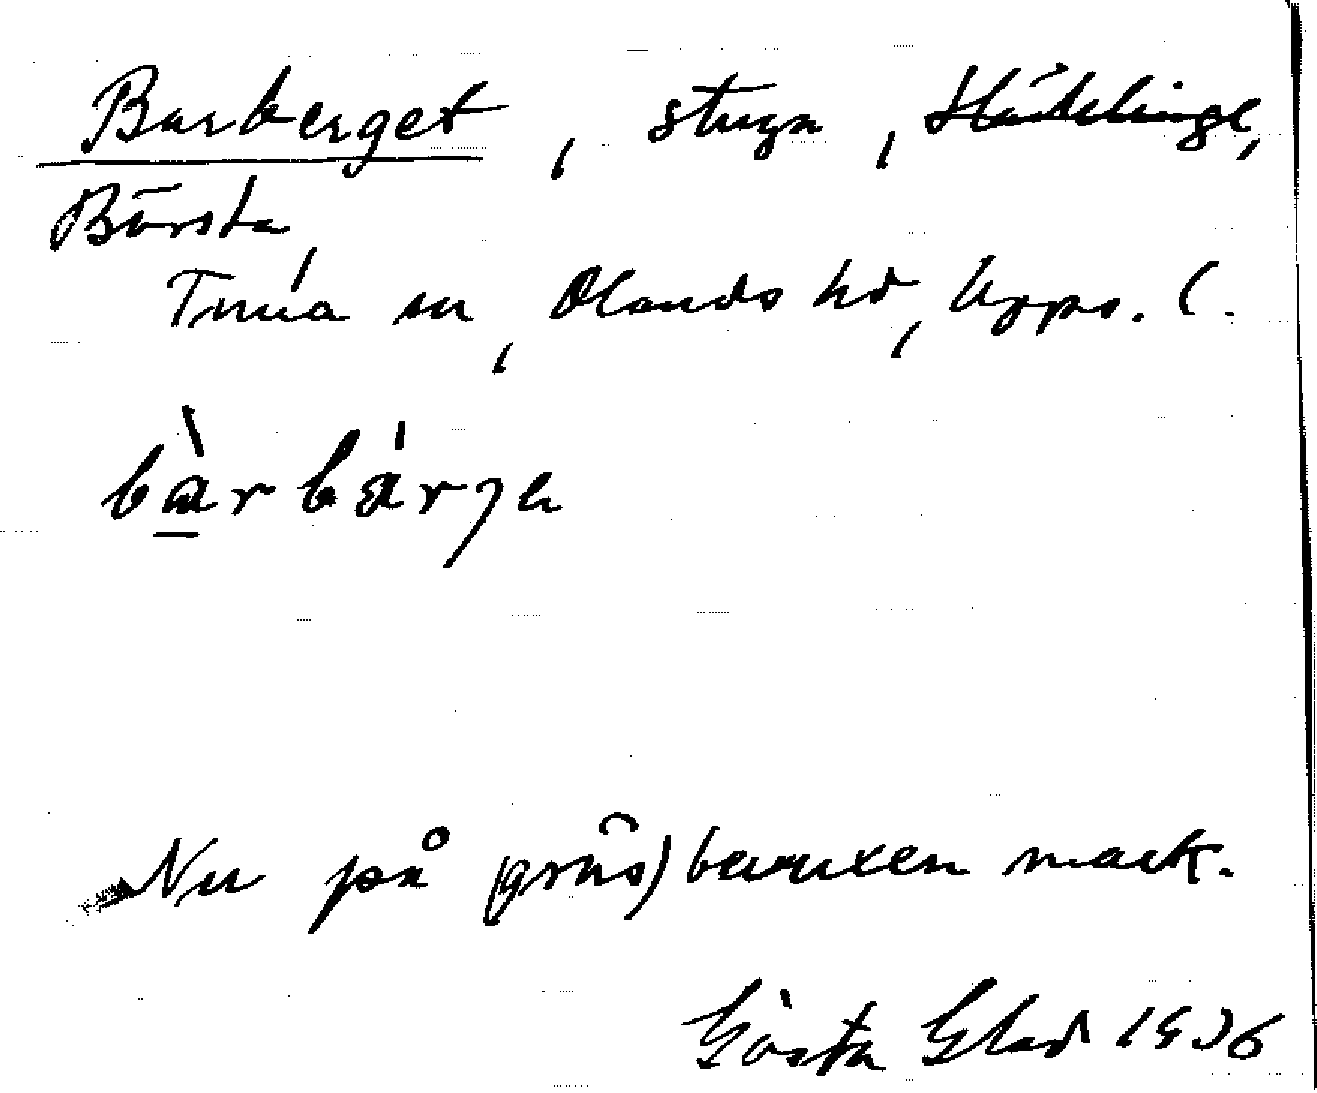 Barberget, stuga, ~~Häcklinge~~,
Börsta,
Tuna sn, Olands hd, Upps. l.
bàrbárjə
Nu på (gräs)bevuxen mark.
Gösta Glad 1936